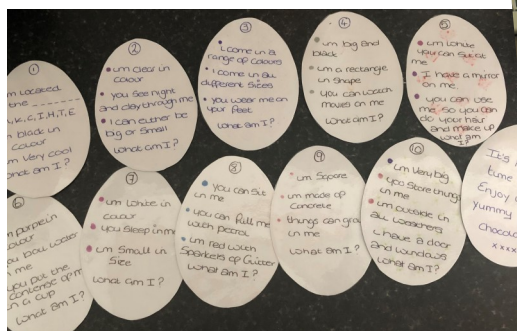 ①
m located
the _ _ _ _ _ _ _
, C, I, H, T, E
m black in
colour
m very cool
hat am I?
②
• um clear in
colour
• you see night
and day through me
• I can either be
big or small
what am I?
③
• I come in a
range of colours
• I come in all
different sizes
• you wear me on
your feet
what am I?
④
• um big and
black
• um a rectangle
in shape
• you can watch
movies on me
what am I?
⑤
• um white
• you can sit at
me
• I have a mirror
on me.
• you can use
me so you can
do your hair
and make up
what am
I?
⑥
m purple in
colour
ou boil water
n me
you put the
contense of m
n a cup
what am I?
⑦
• um white in
colour
• you sleep in me
• um small in
size
what am I?
⑧
• you can sit
in me
• you can fill me
with petrol
• um red with
sparkels of glitter
what am I?
⑨
• um square
• um made of
concrete
• things can grow
in me
what am I?
⑩
• um very big
• you store things
in me
• um outside in
all weathers
• I have a door
and windows
what am I?
It's
time
Enjoy
yummy
chocol
xxxx